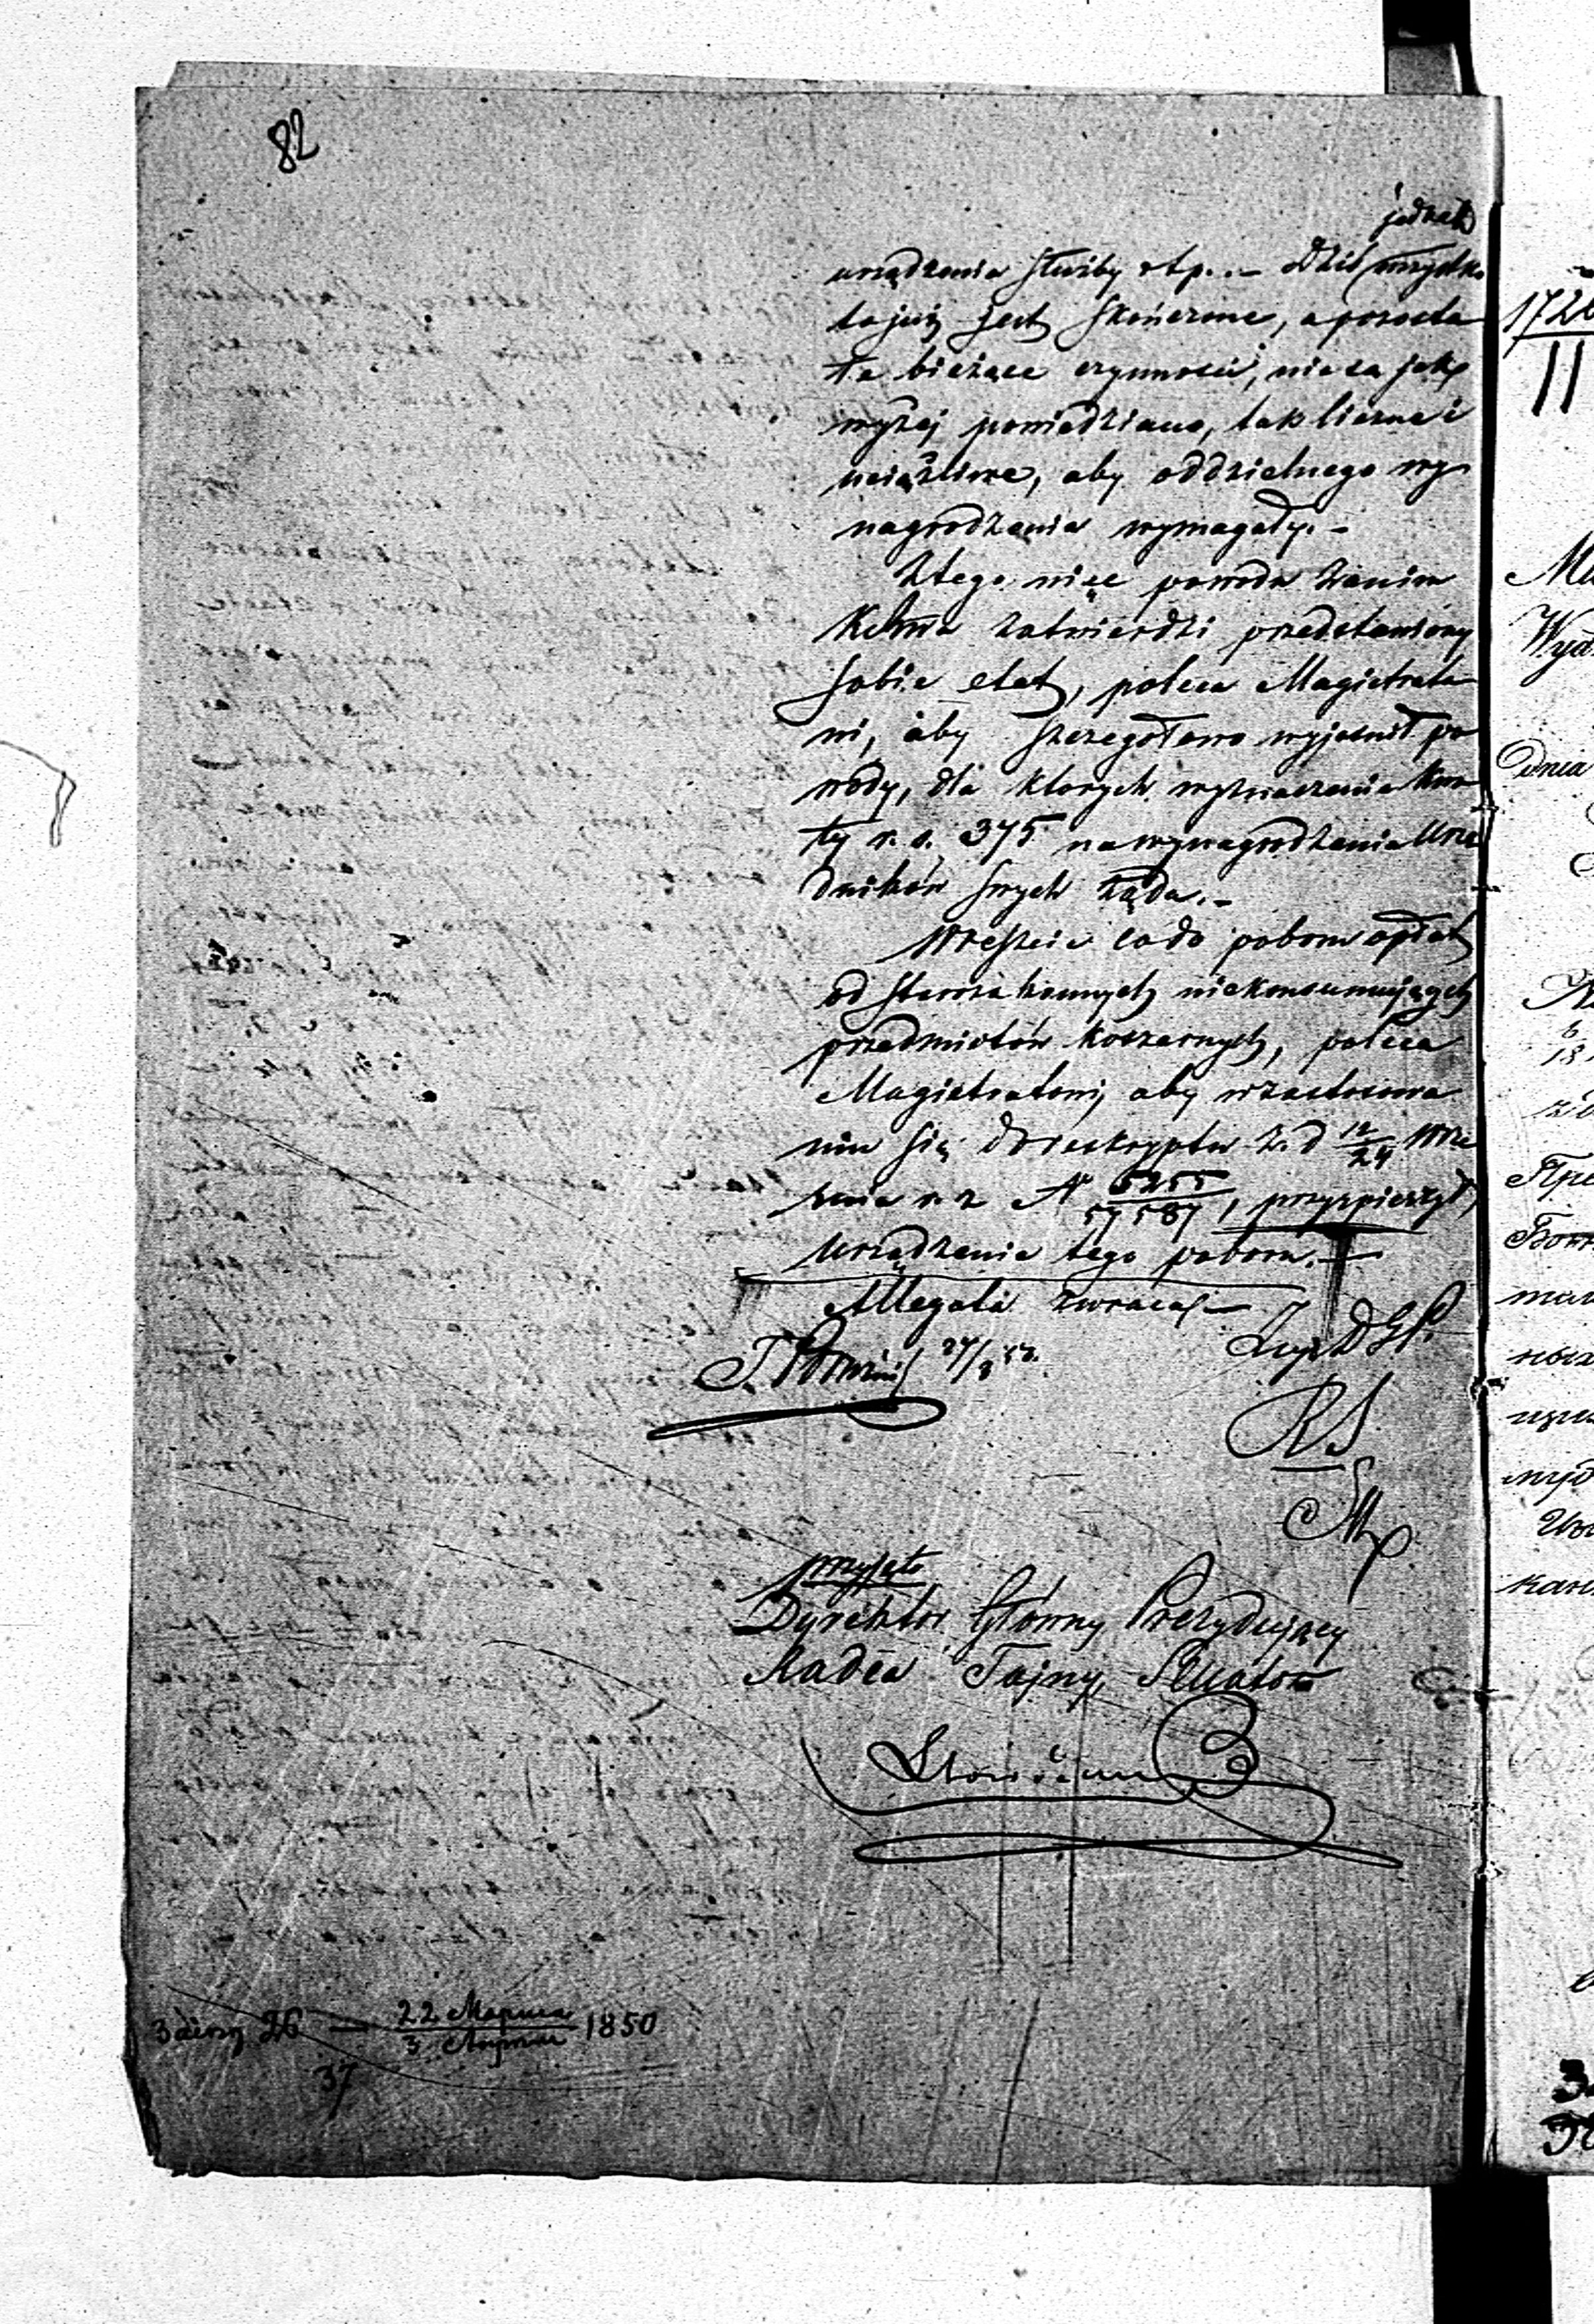 82
jednak
urządzenia służby itp. – Dziś wszystko
to już jest skończone, a pozosta
łe bieżące czynności, nie są jak
wyżej powiedziano, tak liczne i
uciążliwe, aby oddzielnego wy
nagrodzenia wymagały. –
Z tego więc powodu zanim
zatwierdzi przedstawiony
sobie etat, poleca Magistrato
wi, aby szczegółowo wyjaśnił po
wody, dla ktorych wyznaczenia kwo
ty r. s. 375 na wynagrodzenia Urzę
dników swych żąda. –
Wreszcie co do poboru opłat
od starozakonnych niekonsumujących
przedmiotów koszernych, poleca
Magistratowi, aby w zastosowa
niu się do reskryptu z d 12/24 Wrze
śnia r. z. № 5255/57587, przyspieszył
urządzenie tego poboru. –
Allegata zwraca. –
27/3 50.
RS
przyjęto
Dyrektor Główny Prezydujący
Radca Tajny, Senator
26 — 22 Марта/3 Апреля 1850
37
1722
11
dnia